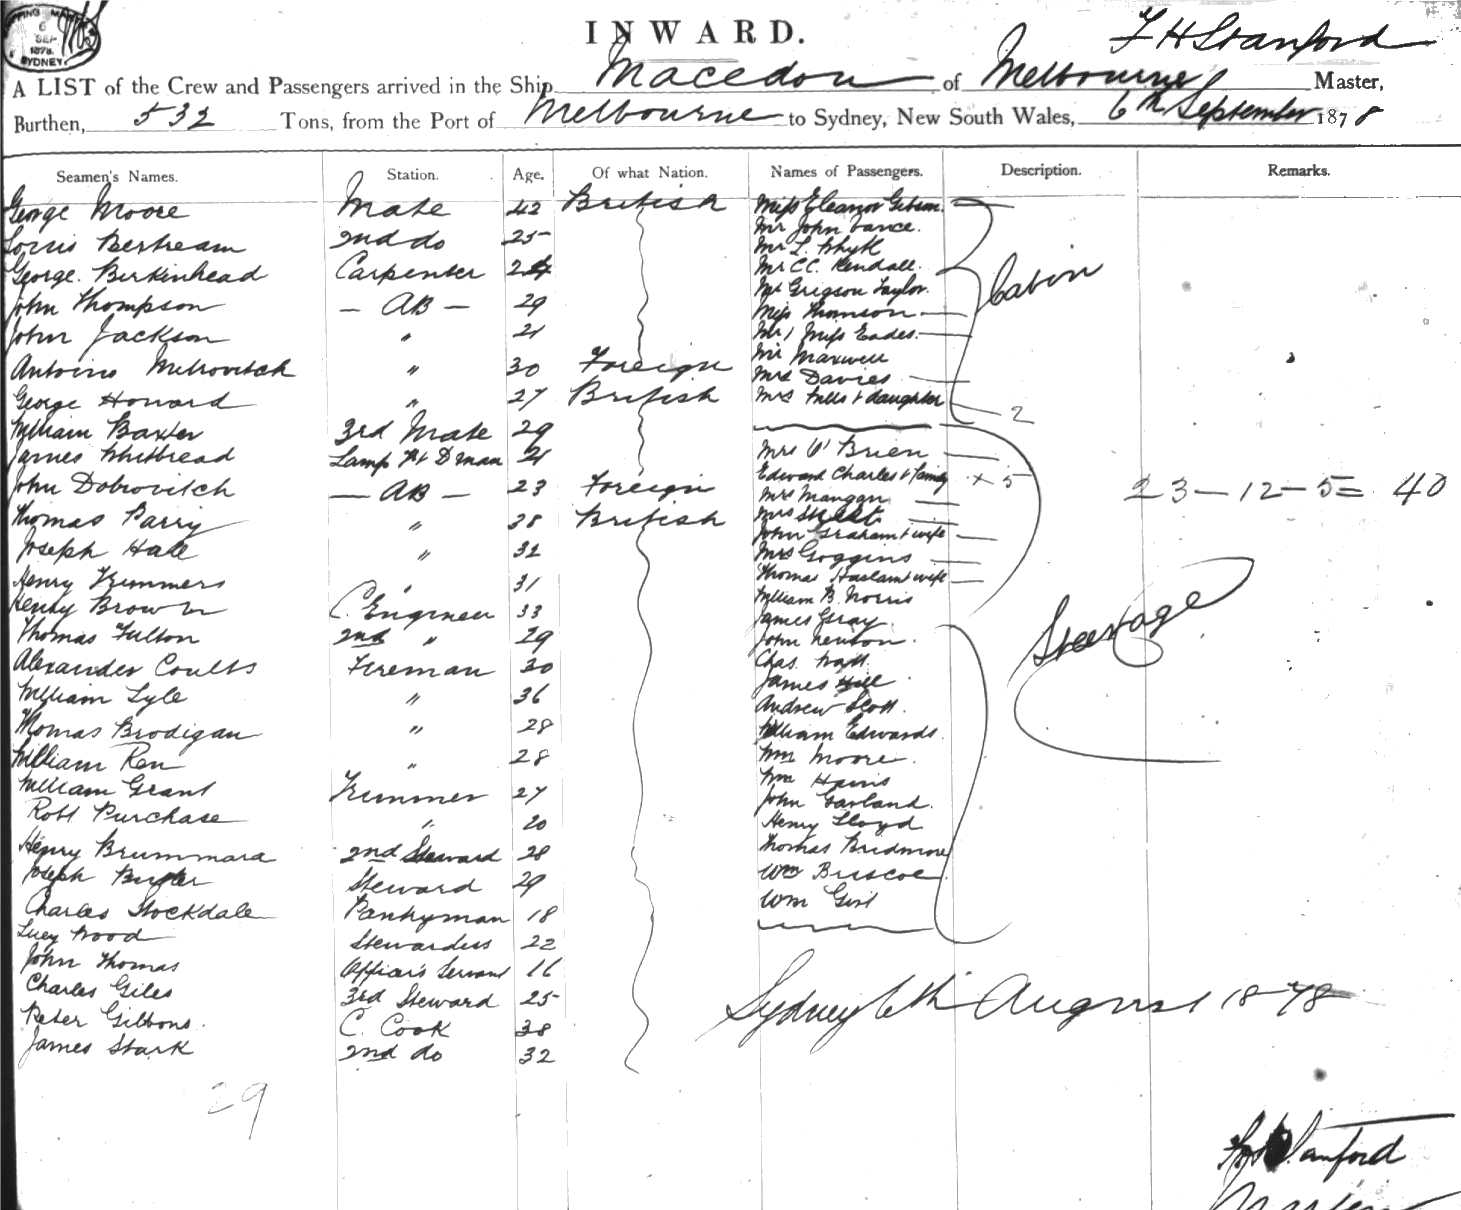 6
SEP
1878
SYDNEY
INWARD.
F H Stanford
A LIST of the Crew and Passengers arrived in the Ship Macedon of Melbourne Master,
Burthen, 532 Tons, from the Port of Melbourne to Sydney, New South Wales, 6th September 1878
Seamen's Names. Station. Age. Of what Nation. Names of Passengers. Description. Remarks.
George Moore Mate 42 British Miss Eleanor Gibson
Louis Bertream 2nd do 25 Mr John Vance
George Birkinhead Carpenter 24 Mr L. Whyk
Mr C C Kendall
John Thompson — AB — 29 Mr Grigson Taylor
Cabin
John Jackson " 21 Miss Thomson
Mr & Miss Eades
Antonio Mitrovitch " 30 Foreign Mr Maxwell
Mrs Davies
George Howard " 27 British Mrs Mills & daughter 2
William Baxter 3rd Mate 29
James Whitbread Lamp & D man 21 Mrs O'Brien
John Dobrovitch — AB — 23 Foreign Edward Charles & Family × 5
Mrs Mangan 23 — 12 — 5 = 40
Thomas Parry " 38 British Mrs
John Graham & wife
Joseph Hale " 32 Mrs Goggins
Henry Trimmers " 31 Thomas Haslam & wife
Henry Brown C. Engineer 33 William B. Norris
James Gray
Steerage
Thomas Fulton 2nd " 29 John Newton
Alexander Coutts Fireman 30 Chas. Watt
James Hill
William Lyle " 36 Andrew Scott
Thomas Brodigan " 28 William Edwards
William Ren " 28 Wm Moore
Wm Harris
William Grant Trimmer 27 John Garland
Robt Purchase " 20 Henry Lloyd
Henry Brummard 2nd Steward 28 Thomas Bridmore
Joseph Steward 29 Wm Briscoe
Charles Stockdale Pantryman 18 Wm Girt
Lucy Wood Stewardess 22
John Thomas Officer's Servant 16
Charles Giles 3rd Steward 25
Sydney 6th August 1878
Peter Gibbons. C. Cook 38
James Stark 2nd do 32
29
Stanford
Master